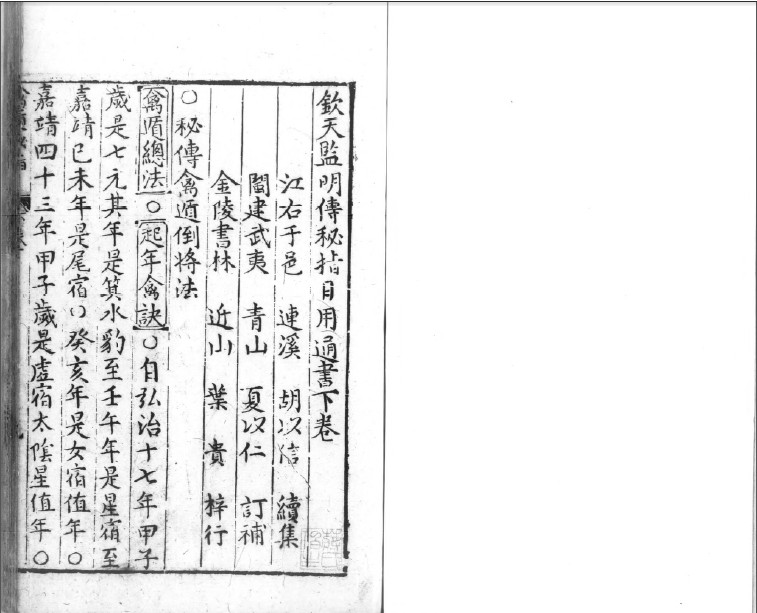 欽天監明傳秘指日用通書下卷
江右于邑 連溪 胡以信 續集
閩建武夷 青山 夏以仁 訂補
金陵書林 近山 葉貴 梓行
○秘傳禽遁倒將法
禽遁總法○起年禽訣○自弘治十七年甲子
歲是七元其年是箕水豹至壬午年是星宿至
嘉靖已未年是尾宿○癸亥年是女宿值年○
嘉靖四十三年甲子歲是虛宿太陰星值年○